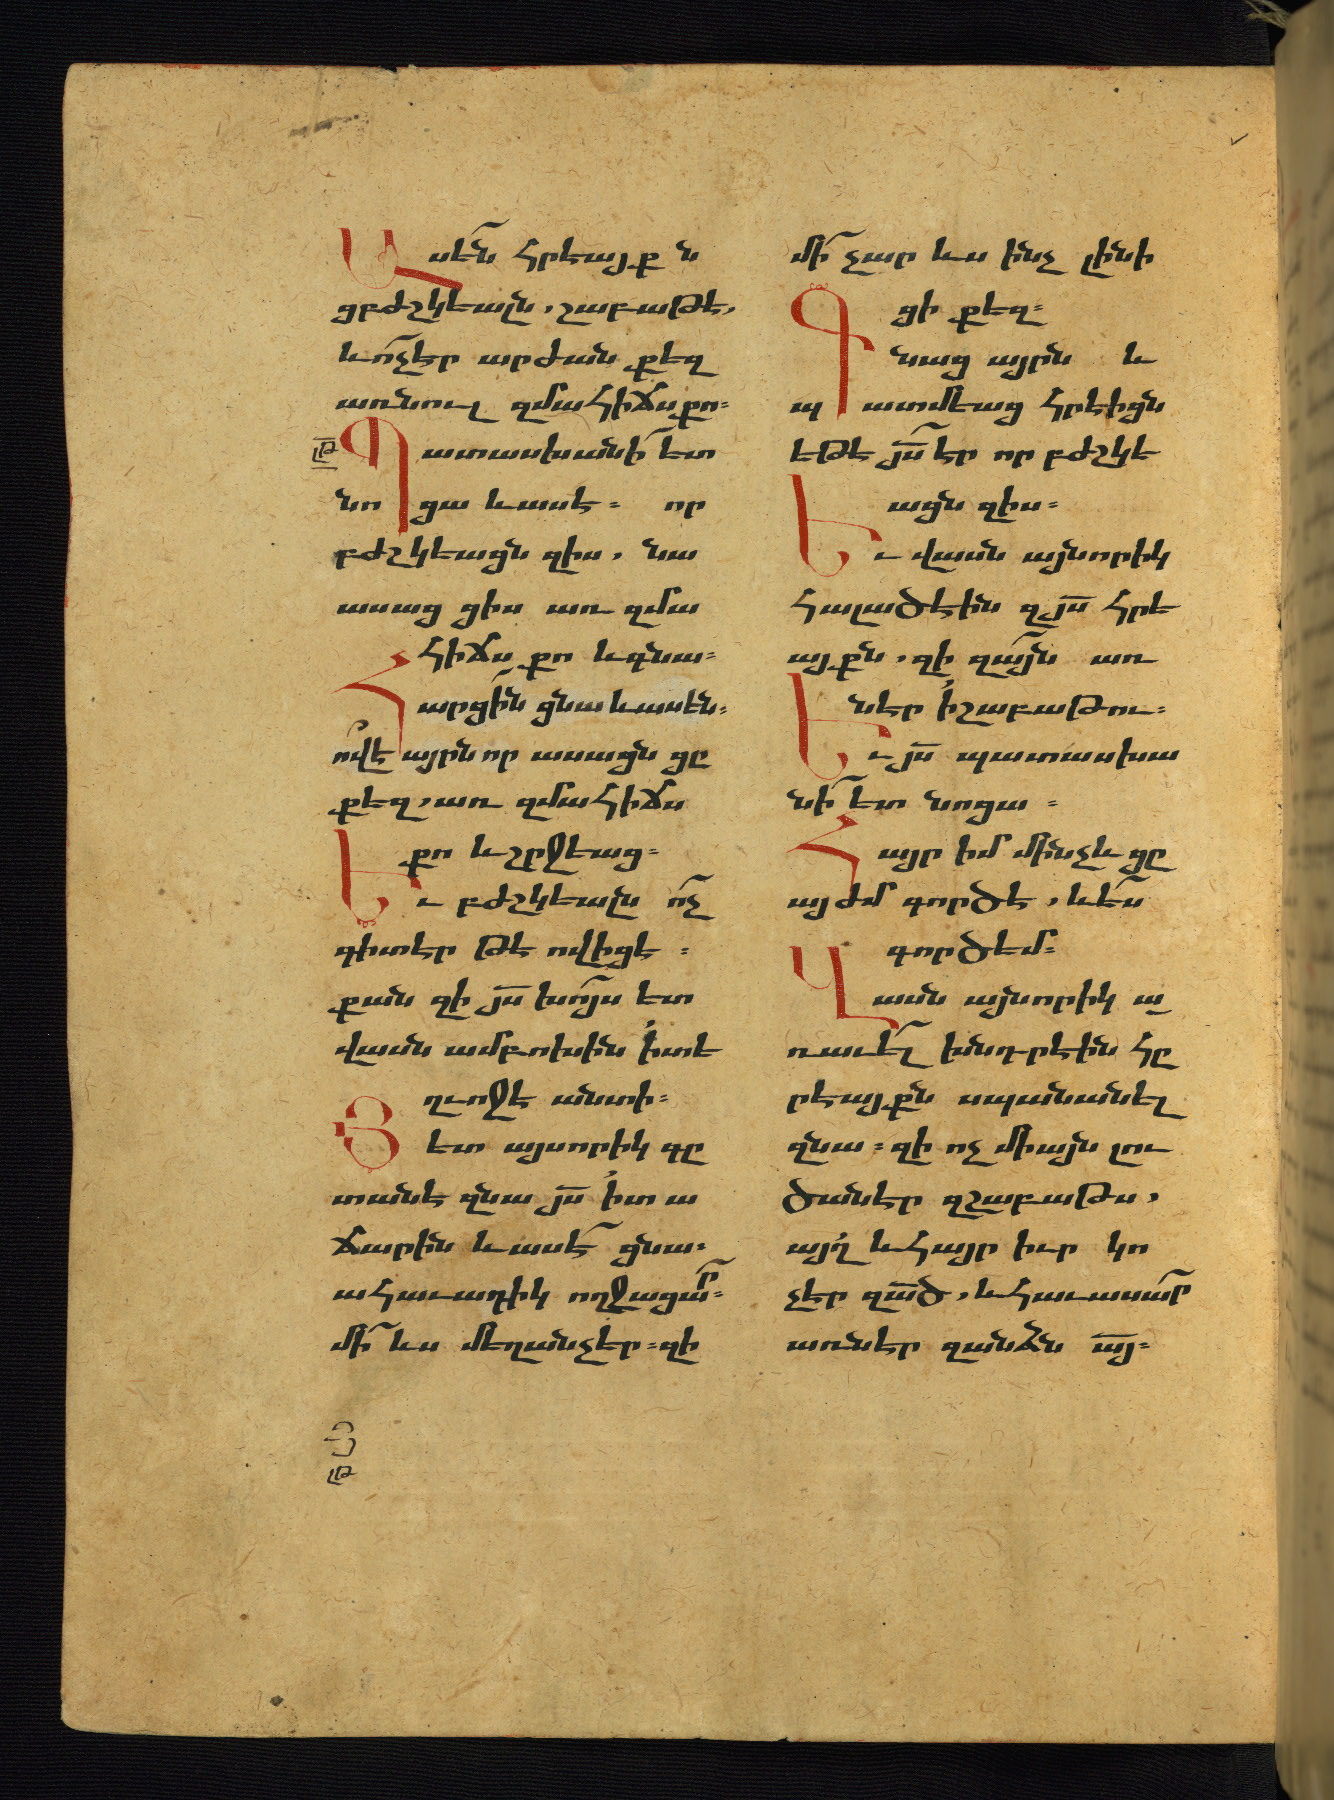 Ասե՞ն հրեայքն
ցբժշկեալն, շաբաթ է,
և ո՞չ էր արժան քեզ
առնուլ զմահիճս քո։
լթ
Պատասխանի՞ ետ
նոցա և ասէ։ որ
բժշկեացն զիս, նա
ասաց ցիս առ զմա
հիճս քո և գնա։
Հարցին ցնա և ասեն։
ո՞վ է այրն որ ասացն ցը
քեզ, առ զմահիճս
քո և շրջեաց։
Եւ բժշկեալն ո՞չ
գիտէր թե ով իցէ։
քան զի յ̅ս խոյս ետ
վասն ամբոխին ի տե
ղւոջէ անտի։
Յետ այսորիկ գը
տանէ զնա յ̅ս ի տա
ճարին և ասէ ցնա։
ահաւադիկ ողջացար։
մի՛ ևս մեղանչէր։ զի
մի՛ չար ևս ինչ լինի
ցի քեզ։
Գնաց այրն և
պատմեաց հրէիցն
եթե յ̅ս էր որ բժշկե
ացն զիս։
Եւ վասն այնորիկ
հալածէին զյ̅ս հրե
այքն, զի զայն առ
նէր ի շաբաթու։
Եւ յ̅ս պատասխա
նի՛ ետ նոցա։
Հայր իմ մինչև ցը
այժմ գործէ, և ես
գործեմ։
Վասն այնորիկ ա
ռաւել խնդրէին հը
րեայքն սպանանել
զնա։ զի ոչ միայն լու
ծանէր զշաբաթս,
այղ և հայր իւր կո
չէր զա̅ծ, և հաւասար
առնէր զանձն ա̅յ։
յց
լթ